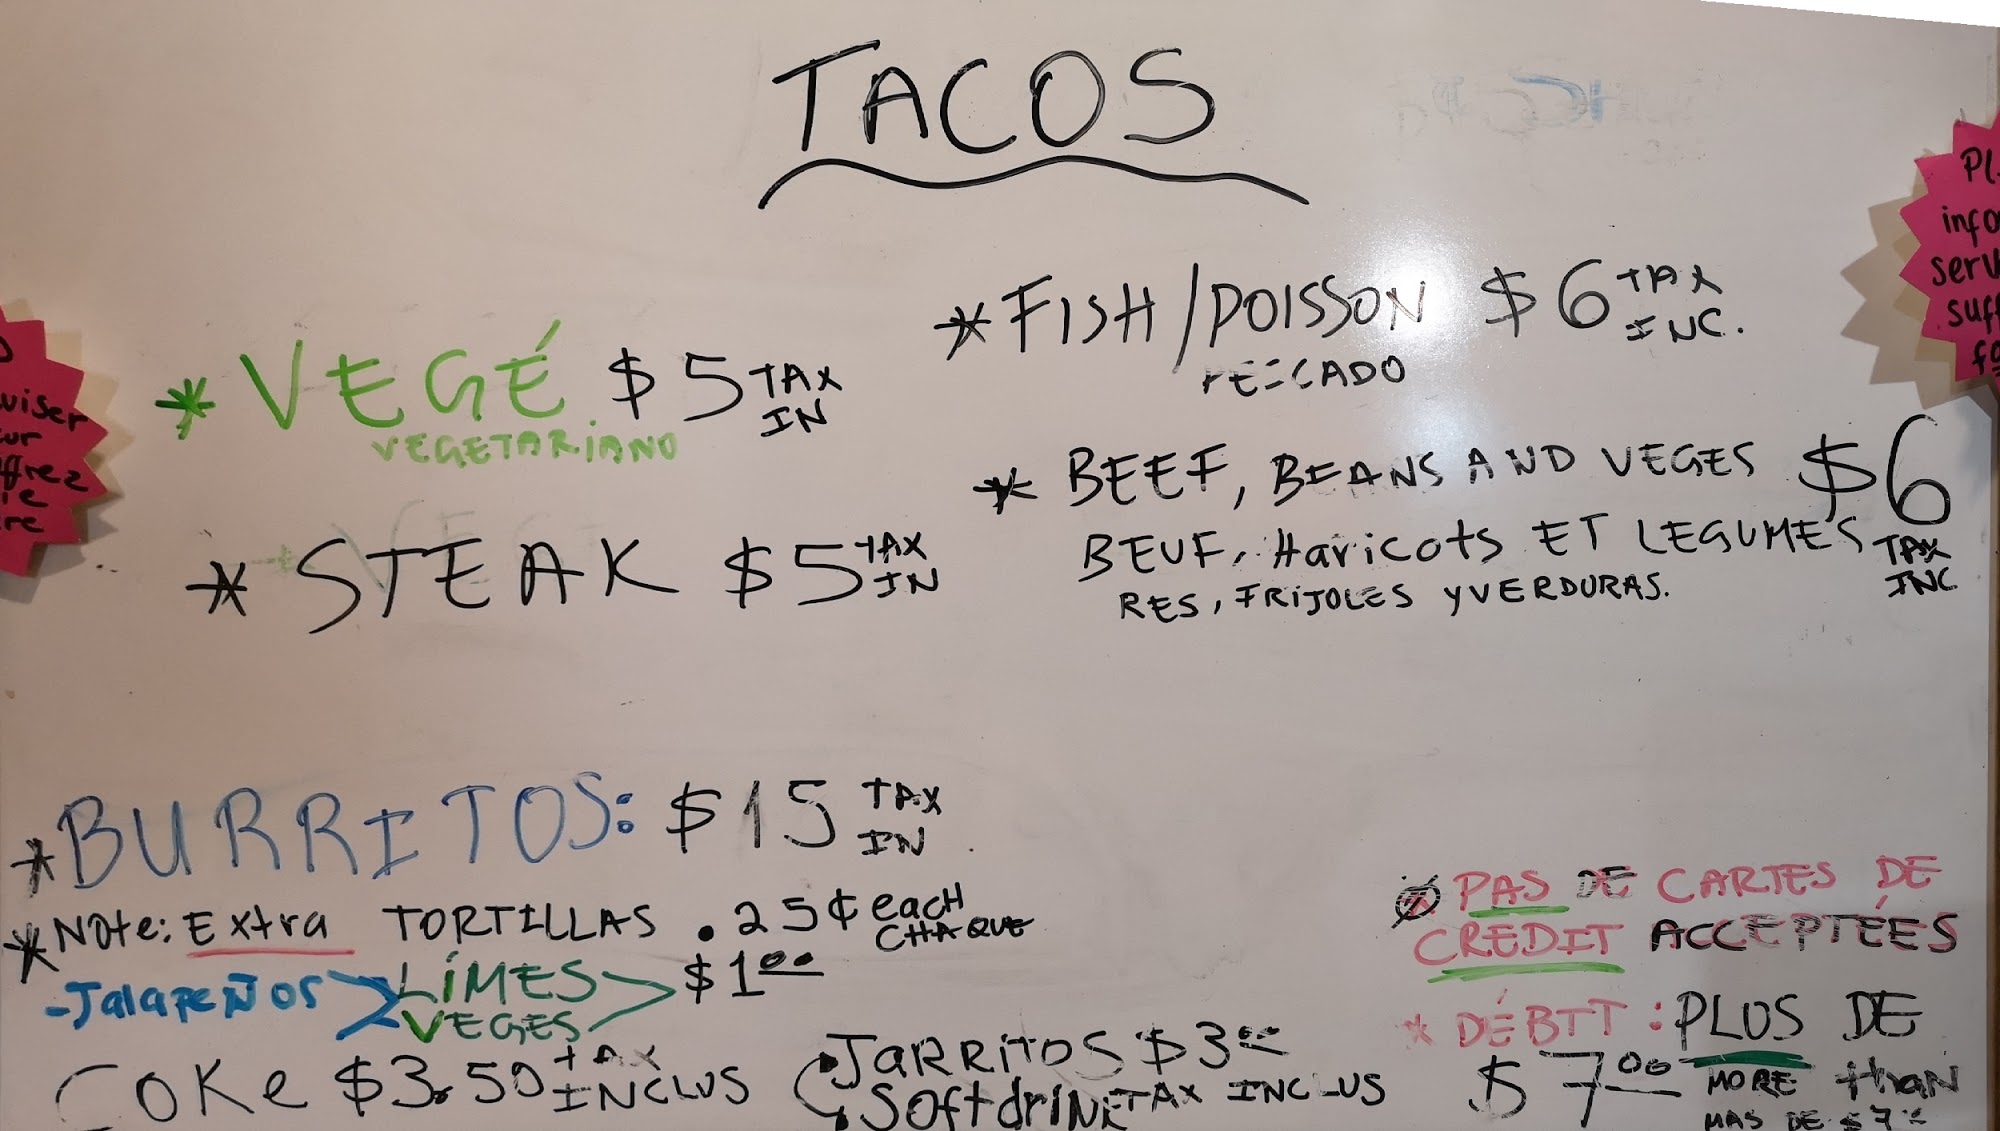 TACOS
* VEGÉ $5 TAX IN
VEGETARIANO
* STEAK $5 TAX IN
* FISH/POISSON $6 TAX INC.
PEZCADO
* BEEF, BEANS AND VEGES $6 TAX INC.
BEUF, HARICOTS ET LEGUMES
RES, FRIJOLES Y VERDURAS.
* BURRITOS: $15 TAX IN
* Note: Extra TORTILLAS .25¢ each
CHAQUE
-JALAPEÑOS > LÍMES > $1.00
VEGES
COKE $3.50 TAX INCLUS
JARRITOS $3.00
SOFTDRINK TAX INCLUS
* PAS DE CARTES DE
CREDIT ACCEPTÉES
* DÉBIT: PLUS DE
$7.00 MORE than
MAS DE $7
Pl
info
serv
suff
viser